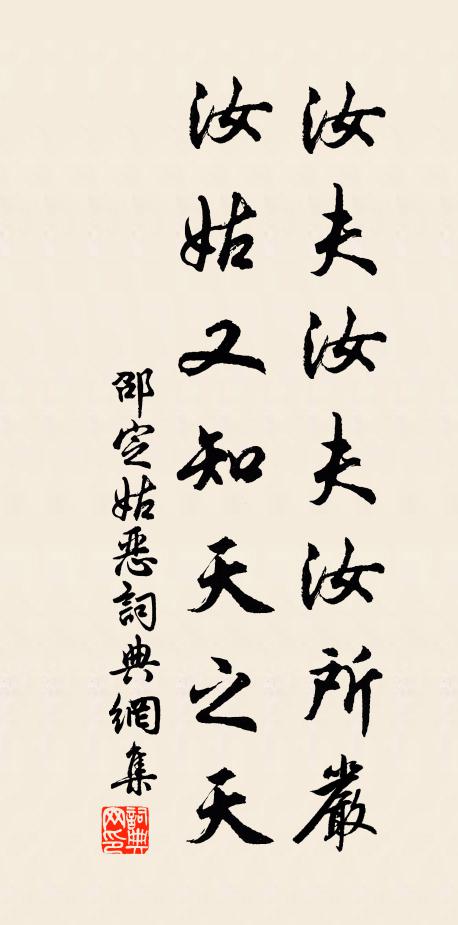 汝夫汝夫汝所嚴
汝姑又知天之天
邵定姑惡詞典網集
詞典网印